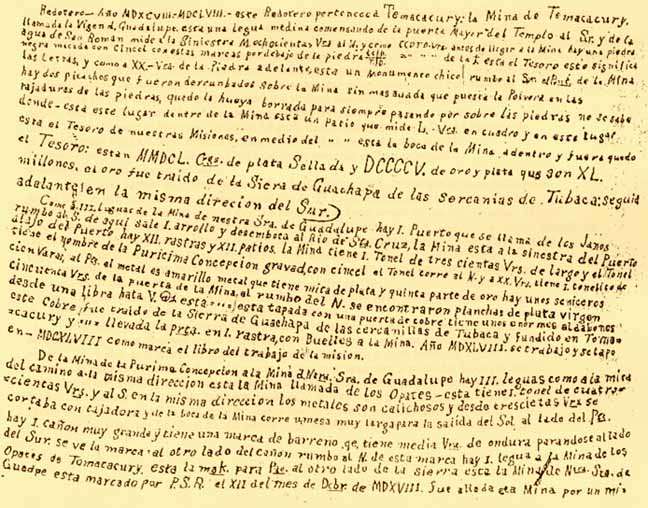 Redotero — Año MDXCVIII-MDCLVIII.- este Redotero pertenece á Tomacacury: la Mina de Tomacacury.
llamada la Vigen d, Guadalupe, esta una legua medina comensando de la puerta Mayor del Templo al Sr. y de la
agua de San Roman mide a la Siniestra antes de llegar a la Mina hay una piedra
negra macada con Cincel con estas marcas por debajo de la piedra de la esta el Tesoro esto significa
las Letras, y como a XX.- Vrs. de la Piedra adelante, esta un Monumento chico rumbo al Sur de la Mina
hay dos picachos que fueron derrumbados sobre la Mina sin mas que puesta la Polvera en las
rajaduras de las piedras, quedo la hueya borrada para siempre pasando por sobre las piedras no se sabe
donde-esta este lugar dentro de la Mina esta un patio que mide L. Vrs. en cuadro y en este lugar
esta el Tesoro de nuestras Misiones, en medio del " " esta la boca de la Mina, adentro y fuera quedo
el Tesoro: estan MMDCL. Cgs. de plata Sellada y DCCCCV. de oro y plata que son XL.
millones, el oro fue traido de la Siera de Guachapa de las sercanias de Tubaca: seguid
adelante en la misma direcion del Sur.
Como á III. Leguas de la Mina de nestra Sra. de Guadalupe hay I. Puerto que se llama de los Janos
rumbo al S. de aqui sale I. arrollo y desemboca al Rio de Sta. Cruz, la Mina esta a la sinestra del Puerto
abajo del Puerto hay XII. rastras y XII. patios. la Mina tiene I. Tonel de tres cientas Vrs. de largo y el Tonel
tiene el nombre de la Puricima Concepcion gravad, con cincel el Tonel corre al N. y a XX. Vrs. tiene I. tonelito de
cien Varas, al Pte. el metal es amarillo metal que tiene mita de plata y quinta parte de oro hay unos seniceros
cincuenta Vrs. de la puerta de la Mina, al rumbo del N. se encontraron planchas de plata virgen
desde una libra hata V. @s esta tapada con una puerta de cobre tiene unos enormes aldabones
este Cobre fue traido de la Sierra de Guachapa de las cercanillas de Tubaca y fundido en Toma=
cacury y llevada la Prta. en I. rastra, con Buelles a la Mina. Año MDXLVIII. se trabajo y se tapo
en - MDCXLVIII como marca el libro del trabajo de la mision.
De la Mina de la Purima Concepcion a la Mina d. Ntra. Sra. de Guadalupe hay III. leguas como a la mita
del camino a la misma direccion esta la Mina llamada de los Opates - esta tiene I. tonel de cuatro-
=cientas Vrs. y al S. en la misma direccion los metales son calichosos y desde Vrs. se
cortaba con tajadora y de la boca de la Mina corre mesa muy larga para la salida del Sol, al lado del Pte.
hay I. cañon muy grande y tiene una marca de barreno qe. tiene media Vra. de ondura parandose al lado
del Sur. se ve la marca al otro lado del cañon rumbo al N. de esta marca hay I. legua a la Mina de los
Opates de Tomacacury, esta la para Pte. al otro lado de la sierra esta la Mina de Ntra. Sra. de
Guadpe esta marcado por P.S.R. el XII del mes de Dcbr. de MDXVIII. fue allada eta Mina por un mi=